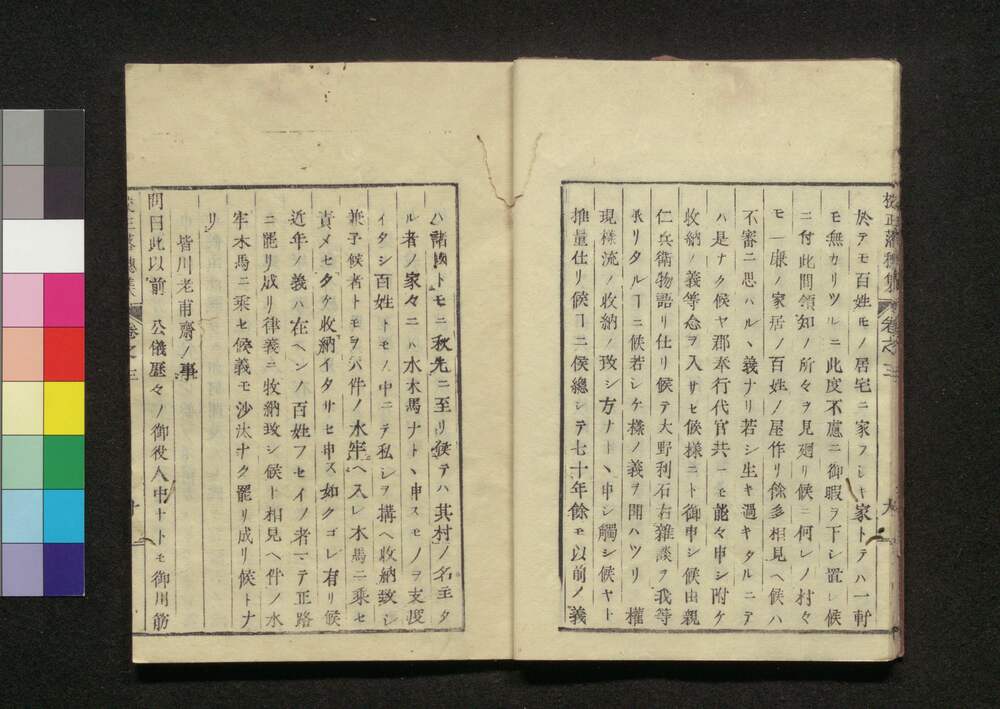 於テモ百姓モノ居宅ニ家フシキ家トテハ一軒
モ無カリツルニ此度不慮ニ御暇ヲ下シ置レ候
ニ付此間領知ノ所々ヲ見廻リ候ニ何レノ村々
モ一康ノ家居ノ百姓ノ屋作リ餘多相見ヘ候ハ
不審ニ思ハルヽ義ナリ若シ生キ過キタルニテ
ハ是ナク候ヤ郡奉行代官共ヘモ能々申シ附ケ
收納ノ義等念ヲ入サセ候樣ニト御申シ候由親
仁兵衛物語リ仕リ候テ大野利石右雜談ヲ我等
承リタルヿニ候若シケ樣ノ義ヲ聞ハツリ權
現樣流ノ收納ノ致シ方ナトヽ申シ觸シ候ヤト
推量仕リ候ヿニ候總シテ七十年餘モ以前ノ義
ハ諸國トモニ秋先ニ至リ候テハ其村ノ名主タ
ル者ノ家々ニハ水木馬ナトヽ申スモノヲ支度
イタシ百姓トモノ中ニテ私シヲ搆ヘ收納致シ
兼子候者トモヲハ件ノ水牢ヘ入レ木馬ニ乘セ
責メセタケ收納イタサセ申ス如クゴレ有リ候
近年ノ義ハ在ヘンノ百姓フセイノ者マテ正路
ニ罷リ成リ律義ニ收納致シ候ト相見ヘ件ノ水
牢木馬ニ乘セ候義モ沙汰ナク罷リ成リ候トナ
リ
皆川老甫齋ノ事
問曰此以前 公儀歴々ノ御役人中ナトモ御用筋
卷之三